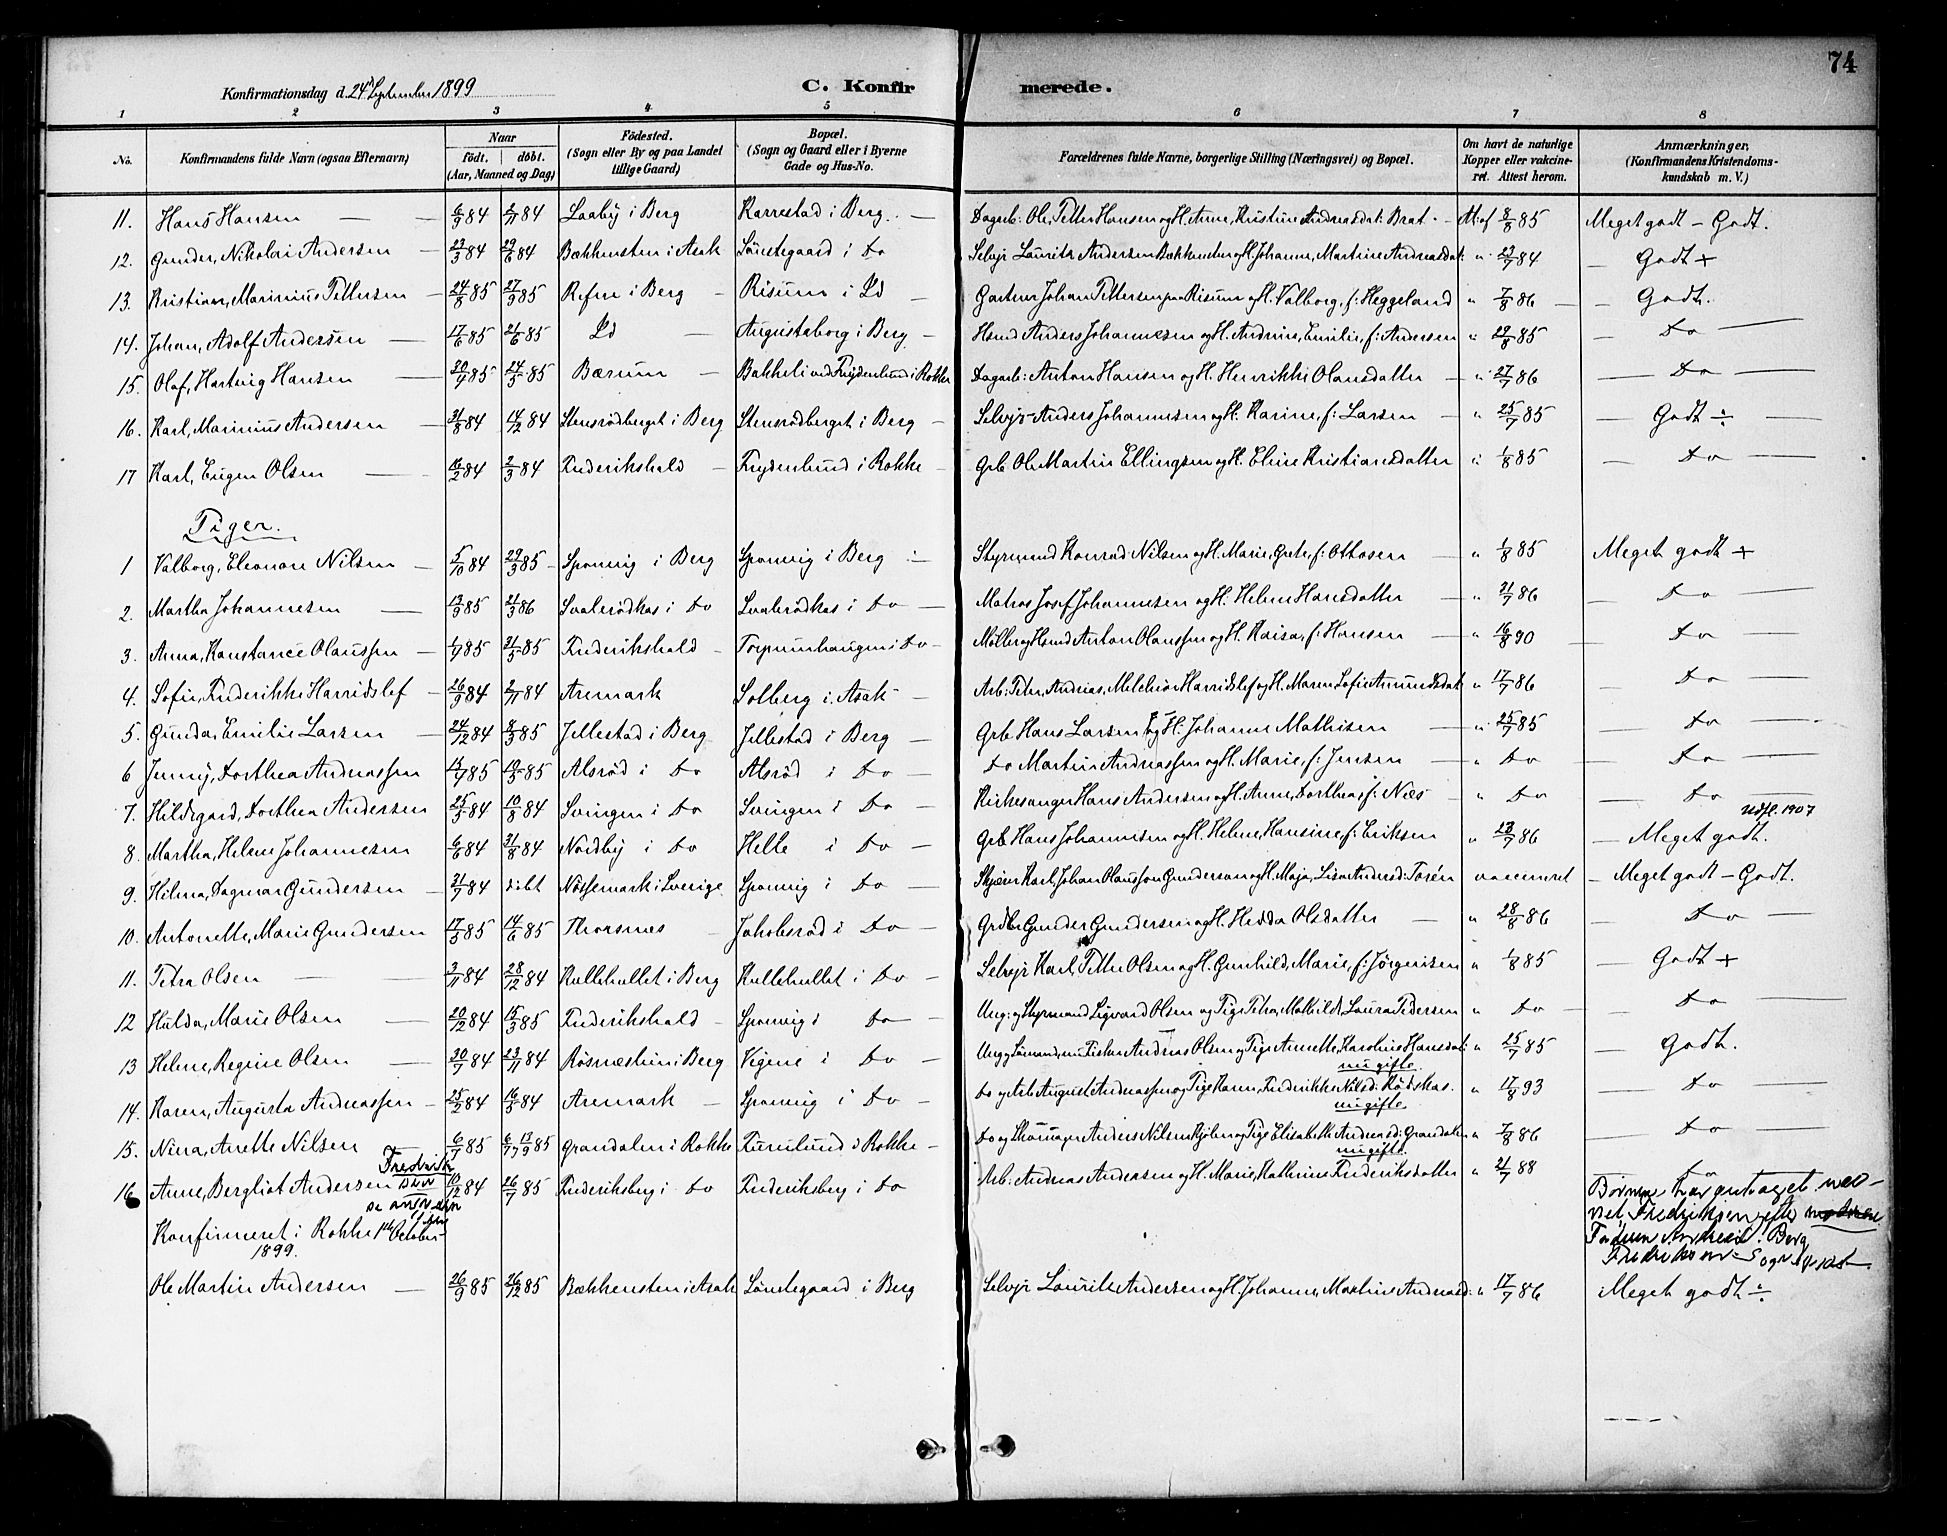 74
Konfirmationsdag d. 24de September 1899 C. Konfirmerede.
1 2 3 4 5 6 7 8
No. Konfirmandens fulde Navn (ogsaa Efternavn) Naar födt. döbt. (Aar, Maaned og Dag) Födested. (Sogn eller By og paa Landet tillige Gaard) Bopæl. (Sogn og Gaard eller i Byerne Gade og Hus-No. Forældrenes fulde Navne, borgerlige Stilling (Næringsvei) og Bopæl. Om havt de naturlige Kopper eller vakcineret. Attest herom. Anmærkninger, (Konfirmandens Kristendomskundskab m. V.)
11. Hans Hansen — 6/9 84 2/11 84 Laaby i Berg Karrestad i Berg — Dagarb: Ole, Petter Hansen og H. Anne, Kristine Andreasdat: Brat. Att. af 8/8 85 Meget godt – Godt.
12. Gunder, Nikolai Andersen 23/3 84 29/6 84 Bækkensten i Asak Löntegaard i Do Selvejr Lauritz Andersen Bækkensten og H. Johanne, Martine Andreasdat: " 23/7 84 — Godt +
13. Kristian, Marinius Pettersen — 24/8 85 27/9 85 Refne i Berg – Risum i Id — Gartner Johan Pettersen paa Risum og H. Valborg, f: Heggeland " 7/8 86 — Godt.
14. Johan, Adolf Andersen — 17/6 85 21/6 85 Id — Augustaborg i Berg – Hsmd Anders Johannesen og H. Andrine, Emilie, f: Andersen " 29/8 85 — Do —
15. Olaf, Hartvig Hansen — 30/4 85 24/5 85 Bærum — Bakkeli ved Frydenlund i Rokke Dagarb: Anton Hansen og H. Henrikke Olausdatter — " 27/7 86 — Do —
16. Karl, Marinius Andersen — 31/8 84 14/12 84 Stensrödberget i Berg Stensrödberget i Berg – Selvejr Anders Johannesen og H. Karine, f: Larsen — " 25/7 85 — Godt ÷ —
17 Karl, Eugen Olsen — 16/2 84 2/3 84 Frederikshald – Frydenlund i Rokke – Grb. Ole Martin Ellingsen og H. Eline Kristiansdatter " 1/8 85 — Do —
Piger.
1 Valborg, Eleonore Nilsen — 5/10 84 29/3 85 Sponvig i Berg Sponvig i Berg — Styrmand Konrad Nilsen og H. Marie, Grete, f: Ottosen — " 1/8 85 Meget godt +
2. Martha Johannesen — 13/9 85 21/3 86 Svalerödkas i Do Svalerödkas i Do — Matros Josef Johannesen og H. Helene Hansdatter — " 31/7 86 — Do —
3. Anna, Konstance Olaussen — 1/4 85 31/5 85 Frederikshald – Torpumhaugen i Do – Möller og Hsmd Anton Olaussen og H. Kaisa, f: Hansen — " 16/8 90 — Do —
4. Sofie, Frederikke Harridslef – 26/9 84 2/11 84 Aremark Solberg i Asak – Arb: Peter, Andreas, Melchior Harridslef og H. Maren Sofie Amundsdat " 17/7 86 — Do —
5. Gunda, Emilie Larsen — 24/12 84 8/3 85 Jellestad i Berg Jellestad i Berg — Grb Hans Larsen og H. Johanne Mathisen — " 25/7 85 — Do —
6 Jenny, Dorthea Andreassen 14/4 85 10/5 85 Alsröd i Do Alsröd i Do Do Martin Andreassen og H. Marie, f: Jensen — " Do — Do —
7. Hildegard, Dorthea Andersen 25/5 84 10/8 84 Svingen i Do Svingen i Do – Kirkesanger Hans Andersen og H. Anne, Dorthea, f: Næs – " Do — Do —
Udfl. 1907
8. Martha, Helene Johannesen 6/6 84 31/8 84 Nordby i Do Helle i Do — Grb Hans Johannesen og H. Helene, Hansine, f: Eriksen " 13/7 86 — Meget godt.
9. Hilma, Dagmar Gundersen — 31/7 84 döbt Nössemark i Sverige Sponvig i Do — Skjærer Karl, Johan Olausson Gunderson og H. Maja, Lisa Andersd: Torén vaccineret – Meget godt – Godt.
10. Antonette, Marie Gundersen 17/5 85 14/6 85 Thorsnes – Jakobsröd i Do – Grdbr Gunder Gundersen og H. Hedda Olsdatter — " 28/8 86 — Do —
11. Petra Olsen — 3/11 84 28/12 84 Kullehullet i Berg Kullehullet i Do – Selvejr Karl, Petter Olsen og H. Gunhild, Marie, f: Jörgensen " 1/8 85 — Godt +
12 Hulda, Marie Olsen — 20/12 84 15/3 85 Frederikshald – Sponvig i Do — Ung: og Styrmand Sigvard Olsen og Pige Petra, Mathilde, Laura Pedersen " Do — Do —
13 Helene, Regine Olsen — 30/7 84 23/11 84 Rösneskun i Berg Vigene i Do – Ung og Sömand, nu Fisker Andreas Olsen og Pige Annette, Karoline Hansdat: " 25/7 85 — Godt.
nu gifte.
14. Karen, Augusta Andreassen – 25/2 84 16/3 84 Aremark — Sponvig i Do – Do og Arb August Andreassen og Pige Karen, Frederikke Nilsd: Rödskas. " 17/8 93 — Do —
nu gifte.
15. Nina, Anette Nilsen 6/7 85 13/9 85 Grandalen i Rokke Furulund i Rokke – Do og Skomager Anders Nilsen Kjölen og Pige Elisabeth Andreasd: Grandalen " 7/8 86 — Do —
nu gifte.
16 Anne, Bergliot Andersen Fredriksen 10/12 84 26/7 85 Frederiksberg i Do Frederiksberg i Do Arb: Andreas Andersen og H. Marie, Kathrine Frederiksdatter " 21/7 88 Do
se anm.
Börnene har antaget navnet Fredriksen efter
Faderen Andreas
Konfirmeret i Rokke 1ste October
1899.
Ole Martin Andersen — 26/9 85 26/12 85 Bækkensten i Asak Löntegaard i Berg Selvejr Lauritz Andersen og H. Johanne, Martine Andreasd: " 17/7 86 Meget godt ÷